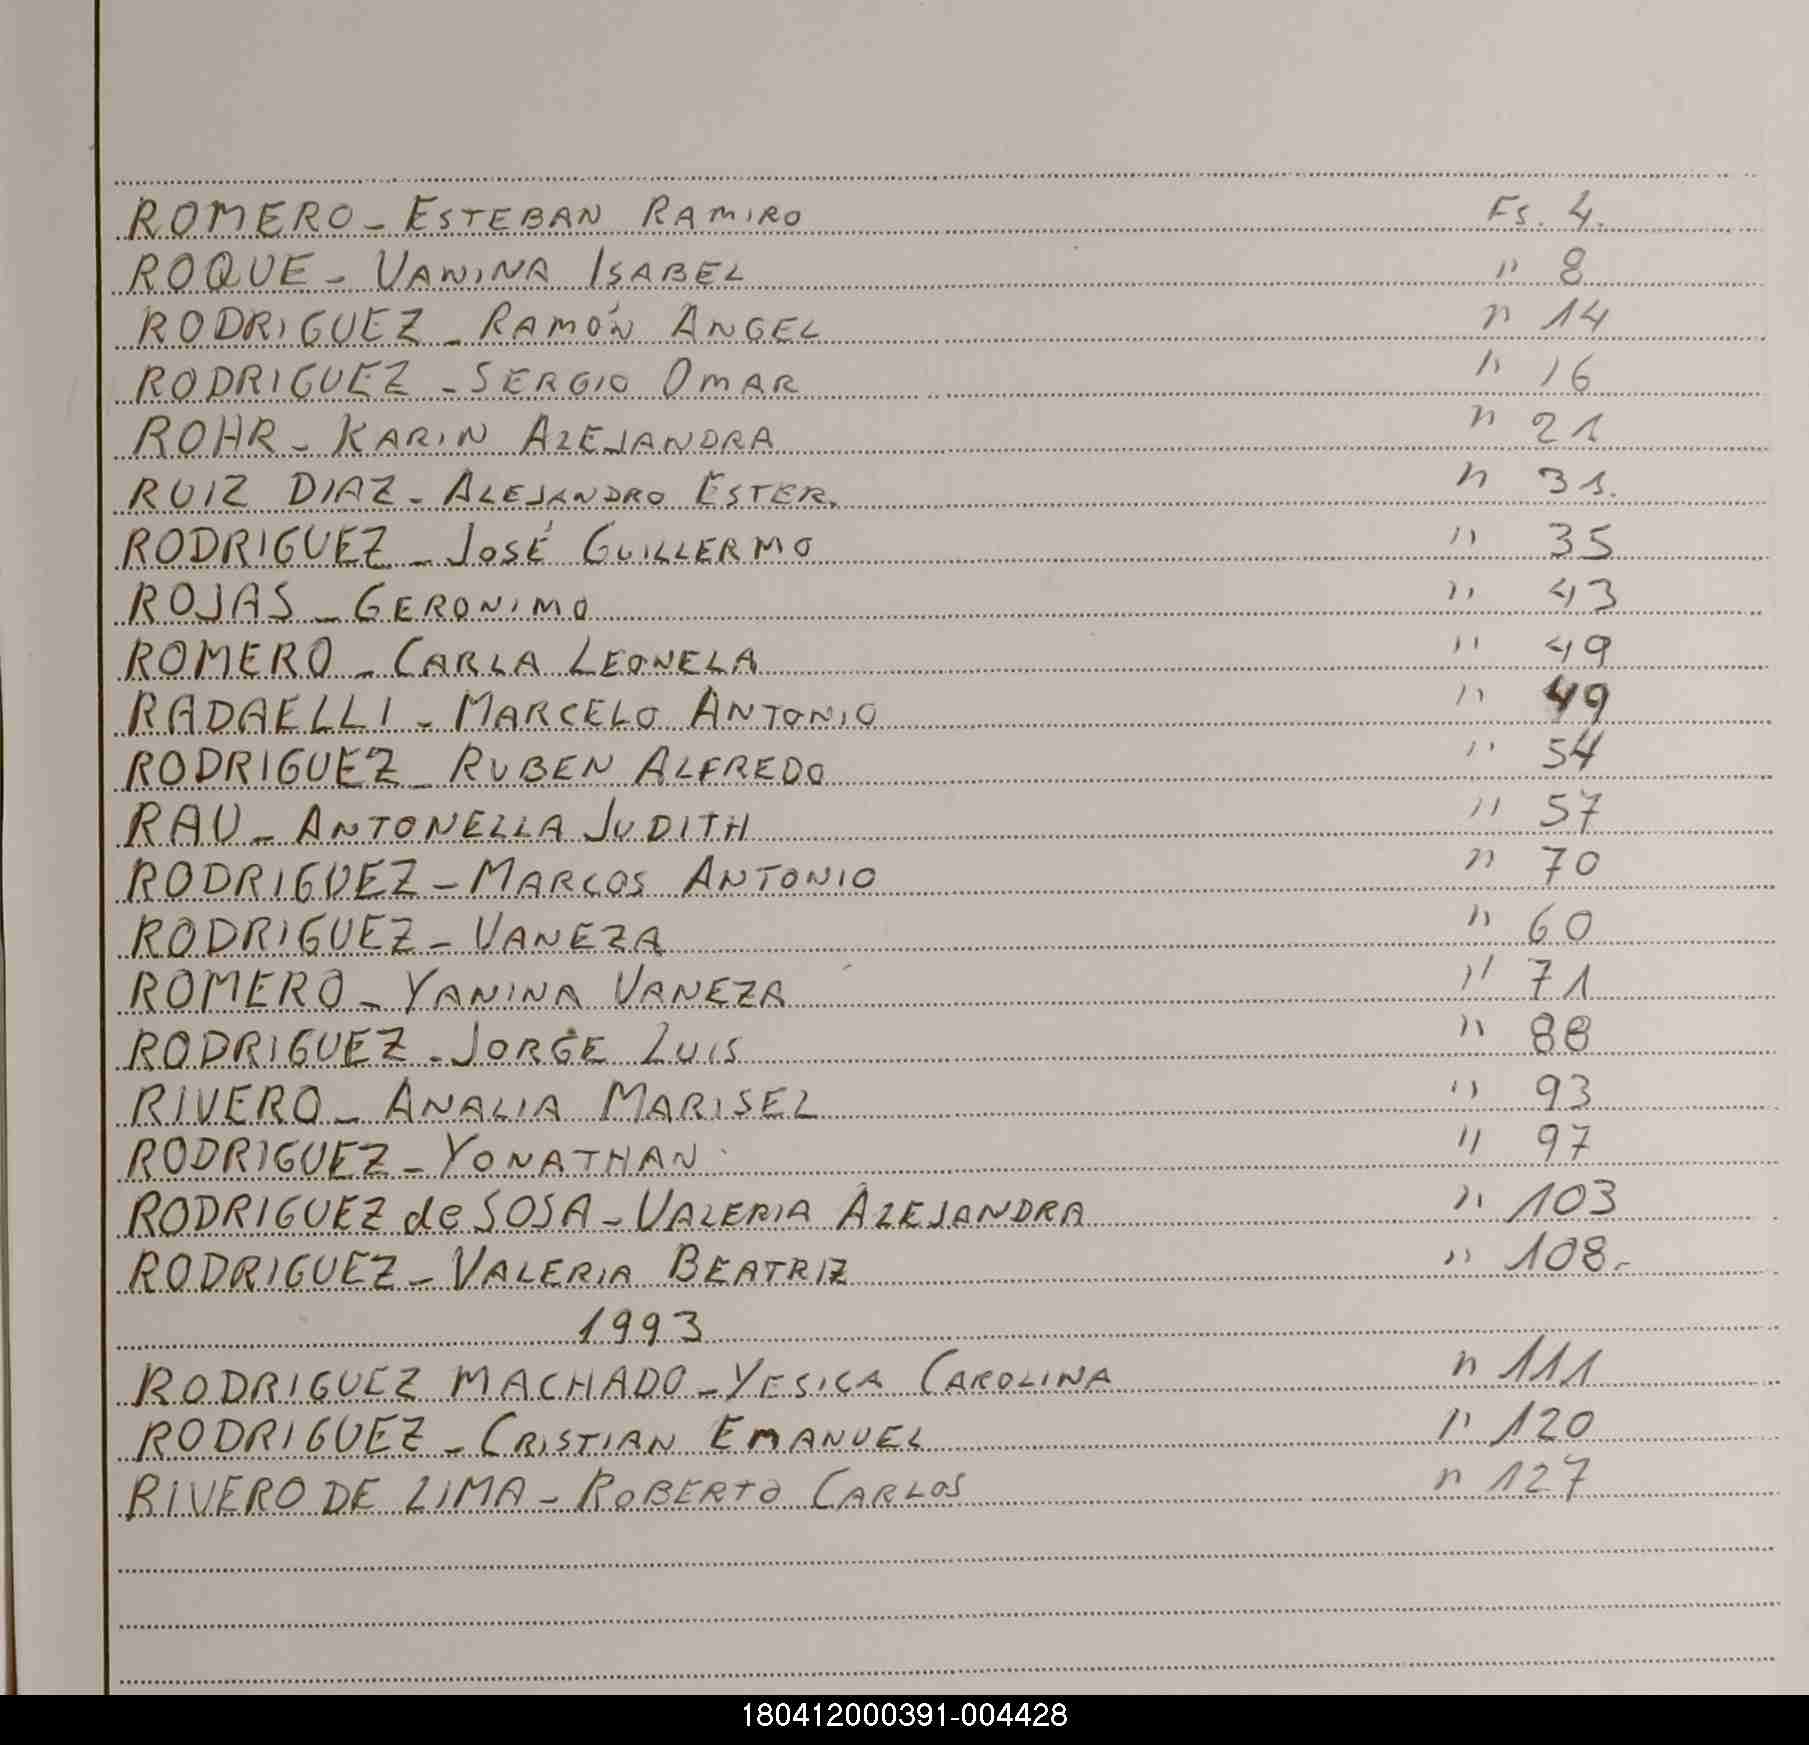 ROMERO - ESTEBAN RAMIRO Fs. 4.
ROQUE - VANINA ISABEL " 8
RODRIGUEZ - RAMÓN ANGEL " 14
RODRIGUEZ - SERGIO OMAR " 16
ROHR - KARIN ALEJANDRA " 21
RUIZ DIAZ - ALEJANDRO ESTER. " 31.
RODRIGUEZ - JOSÉ GUILLERMO " 35
ROJAS - GERONIMO " 43
ROMERO - CARLA LEONELA " 49
RADAELLI - MARCELO ANTONIO " 49
RODRIGUEZ - RUBEN ALFREDO " 54
RAU - ANTONELLA JUDITH " 57
RODRIGUEZ - MARCOS ANTONIO " 70
RODRIGUEZ - VANEZA " 60
ROMERO - YANINA VANEZA " 71
RODRIGUEZ - JORGE LUIS " 88
RIVERO - ANALIA MARISEL " 93
RODRIGUEZ - YONATHAN " 97
RODRIGUEZ de SOSA - VALERIA ALEJANDRA " 103
RODRIGUEZ - VALERIA BEATRIZ " 108.-
1993
RODRIGUEZ MACHADO - YESICA CAROLINA " 111
RODRIGUEZ - CRISTIAN EMANUEL " 120
RIVERO DE LIMA - ROBERTO CARLOS " 127
180412000391-004428